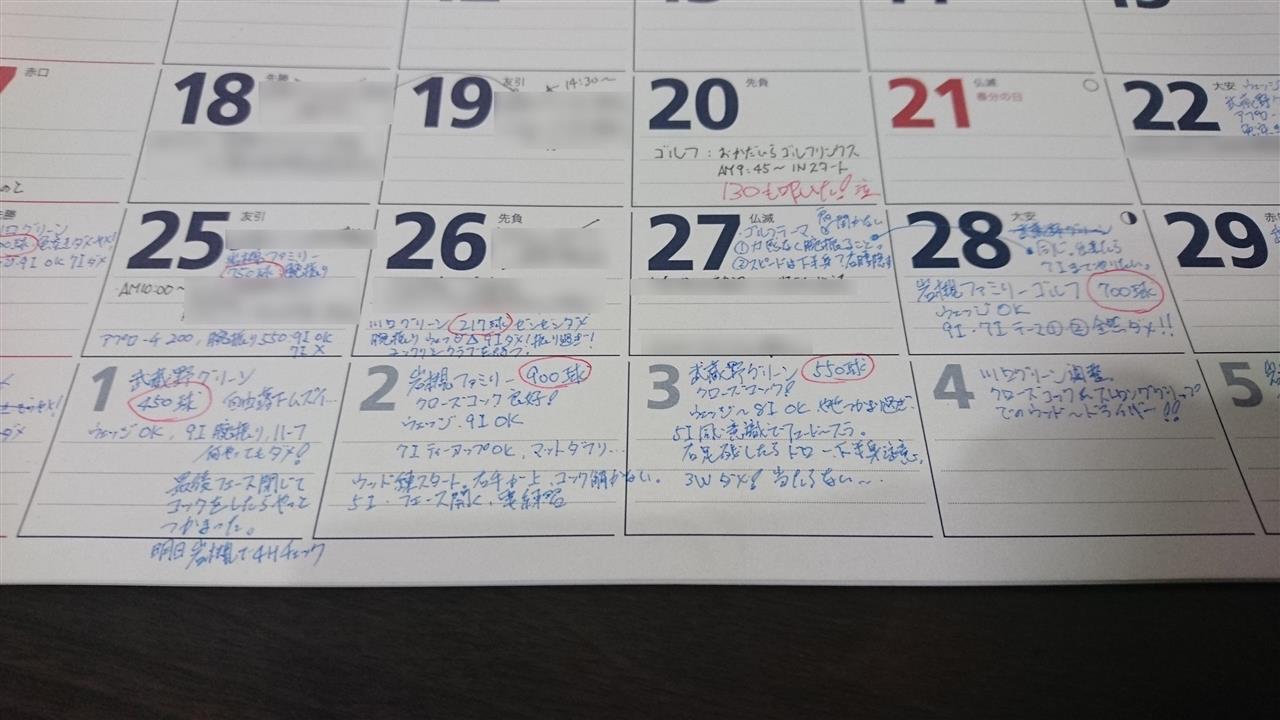 赤口
18 先勝
19 友引
14:30〜
20 先負
ゴルフ:おかだいらゴルフリンクス
AM9:45〜INスタート
130も叩いた!泣
21 仏滅
春分の日
22 大安
ウェッジ
武蔵野
アプローチ
先勝
川口グリーン
9I OK 7Iダメ
25 友引
岩槻ファミリー
750球 腕振り
AM10:00〜
アプローチ200,腕振り550 9I OK
7I ×
26 先負
川口グリーン 217球 ゼンゼンダメ
腕振り ウェッジ△ 9Iダメ!振り過ぎ!
27 仏滅
ゴルフテーマ
①力感なく腕振ること。
②スピードは下半身
28 大安
武蔵野グリーン
同じ。出来たら
7Iまでやりたい。
岩槻ファミリーゴルフ 700球
ウェッジOK
9I・7Iテーマ①②全然ダメ!!
29
1 武蔵野グリーン
450球
ウェッジOK,9I腕振り,ハーフ
何やってもダメ!
最後フェース閉じて
コックをしたらやっと
つかまった。
明日岩槻で4Hチェック
2 岩槻ファミリー 900球
クローズコック良好!
ウェッジ・9I OK
7IティーアップOK,マットダフリ...
ウッド練スタート。右手が上,コック解かない。
5I・フェース開く,要練習
3 武蔵野グリーン 550球
クローズコック!
ウェッジ〜8I OK ややつかまり過ぎ.
5I同じ意識でフェード〜スラ。
右足残したらドロー 下半身注意。
3Wダメ!当たらない〜.
4 川口グリーン調整。
クローズコック&ストロンググリップ
でのウッド〜ドライバー!!
5